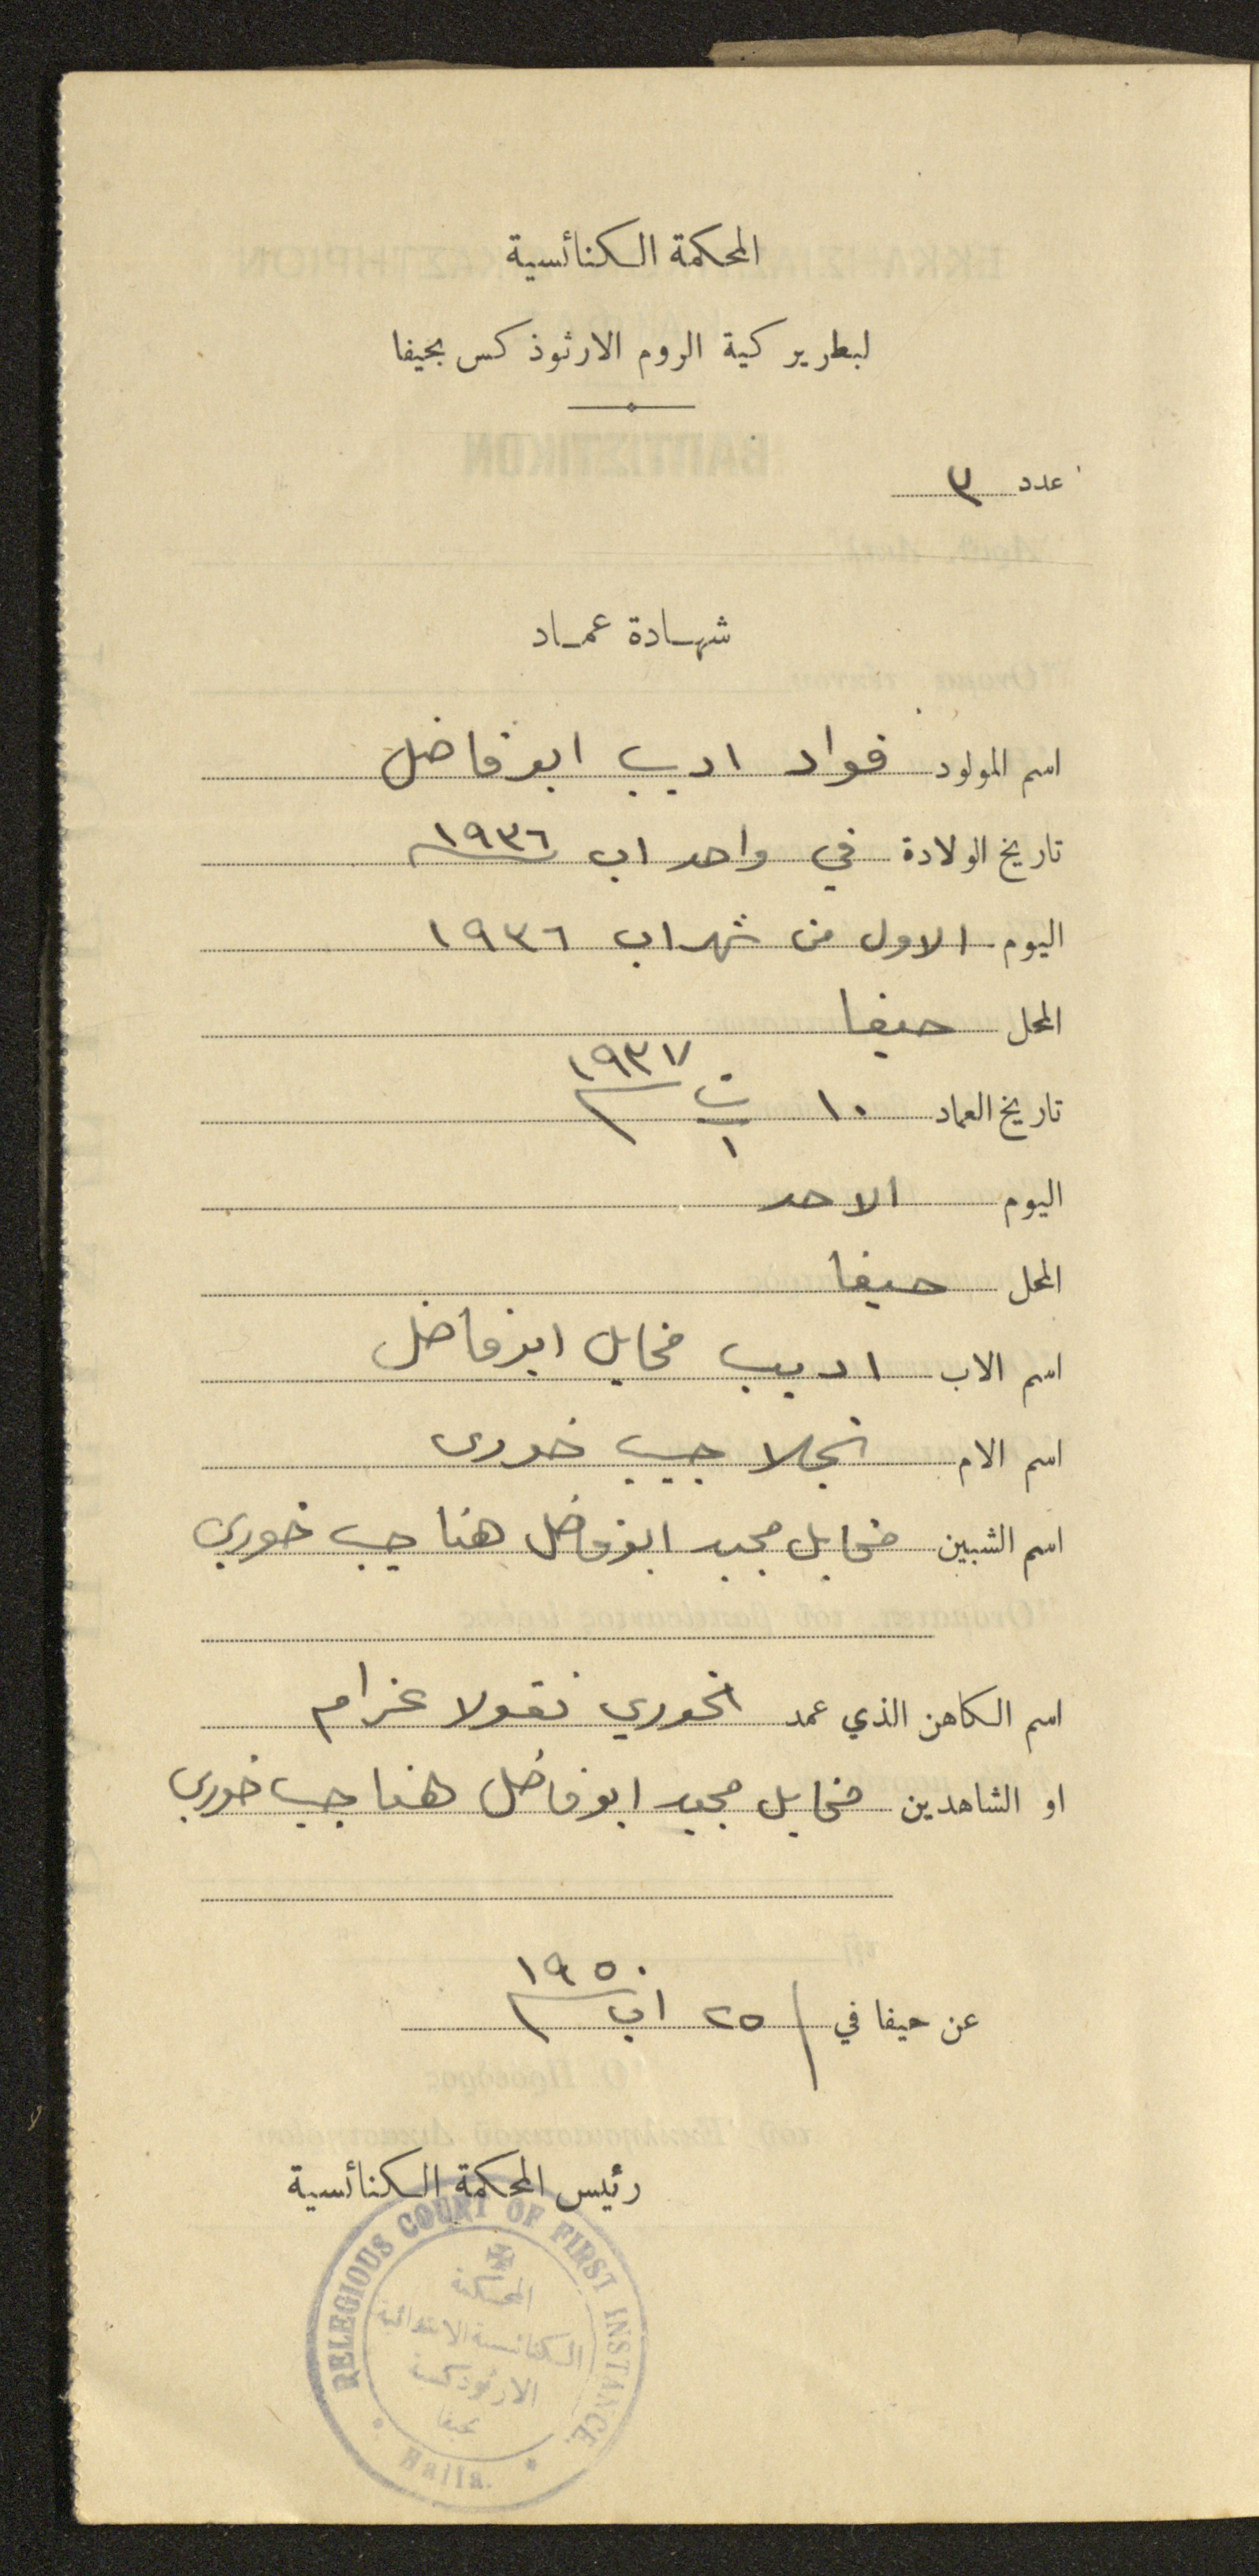 المحكمة الكنائسية
لبطريركية الروم الارثوذكس بحيفا
عدد ٣
شهادة عماد
اسم المولود فواد اديب ابو فاضل
تاريخ الولادة في واحد اب ١٩٣٦
اليوم الاول من شهر اب ١٩٣٦
المحل حيفا
تاريخ العماد ١٠ ت١ ١٩٣٧
اليوم الاحد
المحل حيفا
اسم الاب اديب مخايل ابو فاضل
اسم الام نجلا حبيب خوري
اسم الشبين مخايل مجيد ابو فاضل هنا حبيب خوري
اسم الكاهن الذي عمد الخوري نقولا عزام
او الشاهدين مخايل مجيد ابو فاضل هنا حبيب خوري
عن حيفا في ٢٥ اب ١٩٥٠
رئيس المحكمة الكنائسية
RELEGIOUS COURT OF FIRST INSTANCE.
المحكمة
الكنائسية الابتدائية
الارثوذكسية
بحيفا
Haifa.